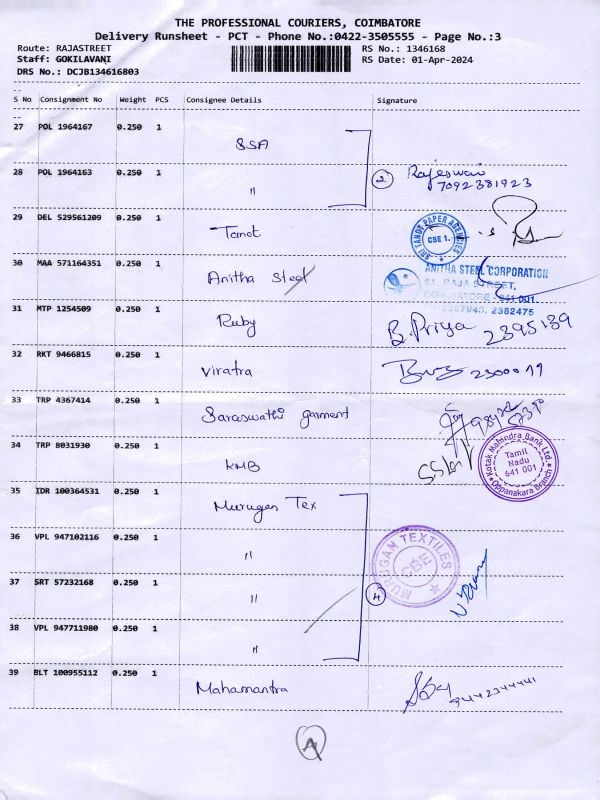 THE PROFESSIONAL COURIERS, COIMBATORE
Delivery Runsheet - PCT - Phone No.:0422-3505555 - Page No.:3
Route: RAJASTREET RS No.: 1346168
Staff: GOKILAVANI RS Date: 01-Apr-2024
DRS No.: DCJB134616803
S No Consignment No Weight PCS Consignee Details Signature
27 POL 1964167 0.250 1 SSA
28 POL 1964163 0.250 1 " 2 Rajeswari
7092381923
29 DEL 529561209 0.250 1 Tanot SRI TANOT PAPER AGENCIES CBE 1.
30 MAA 571164351 0.250 1 Anitha Steel ANITHA STEEL CORPORATION
51, RAJA STREET,
COIMBATORE - 641 001
2382475
31 MTP 1254509 0.250 1 Ruby B. Priya 2395139
32 RKT 9466815 0.250 1 Viratra
33 TRP 4367414 0.250 1 Saraswathi garment
34 TRP 8031930 0.250 1 KMB Kotak Mahindra Bank Ltd. Tamil Nadu 641 001 Oppanakara Branch
35 IDR 100364531 0.250 1 Murugan Tex
36 VPL 947102116 0.250 1 " MURUGAN TEXTILES CBE
37 SRT 57232168 0.250 1 " 4
38 VPL 947711980 0.250 1 "
39 BLT 100955112 0.250 1 Mahamantra